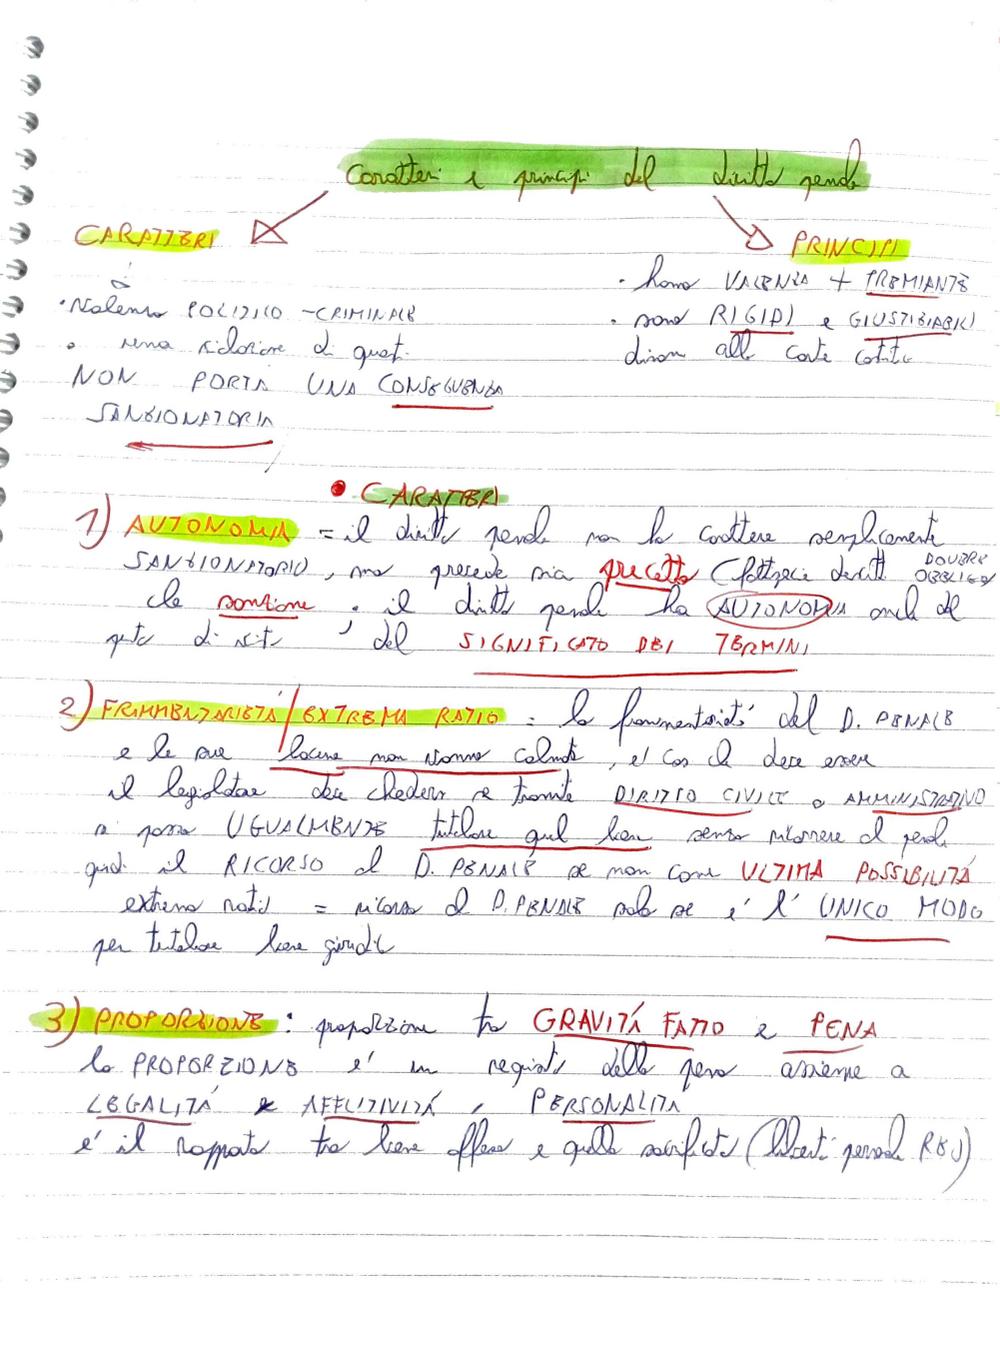 Caratteri e principi del diritto penale
CARATTERI
PRINCIPI
• Valenza POLITICO-CRIMINALE
• una violazione di quest.
NON PORTA UNA CONSEGUENZA
SANZIONATORIA
• hanno VALENZA + PREMIANTE
• sono RIGIDI e GIUSTIZIABILI
dinan alla Corte costit
• CARATTERI
1) AUTONOMIA = il diritto penale non ha carattere semplicemente
SANZIONATORIO, ma precede sia precetto (fattispecie DOVERE OBBLIGO
che sanzione. il diritto penale ha AUTONOMIA anche del
punto di vista del SIGNIFICATO DEI TERMINI
2) FRAMMENTARIETÁ/EXTREMA RATIO = la frammentarietá del D. PENALE
e le sue lacune non vanno colmate, e' cos che deve essere
il legislatore deve chiedersi se tramite DIRITTO CIVILE o AMMINISTRATIVO
si possa UGUALMENTE tutelare quel bene senza ricorrere al penale
quindi il RICORSO al D. PENALE se non come ULTIMA POSSIBILITÁ
extrema ratio = ricorso al D. PENALE solo se e' l' UNICO MODO
per tutelare bene giuridic
3) PROPORZIONE: proporzione tra GRAVITÁ FATTO e PENA
la PROPORZIONE e' un requisito della pena assieme a
LEGALITÁ e AFFLITTIVITÁ, PERSONALITÁ
e' il rapporto tra bene offeso e quello sacrificato (libertá personale REO)